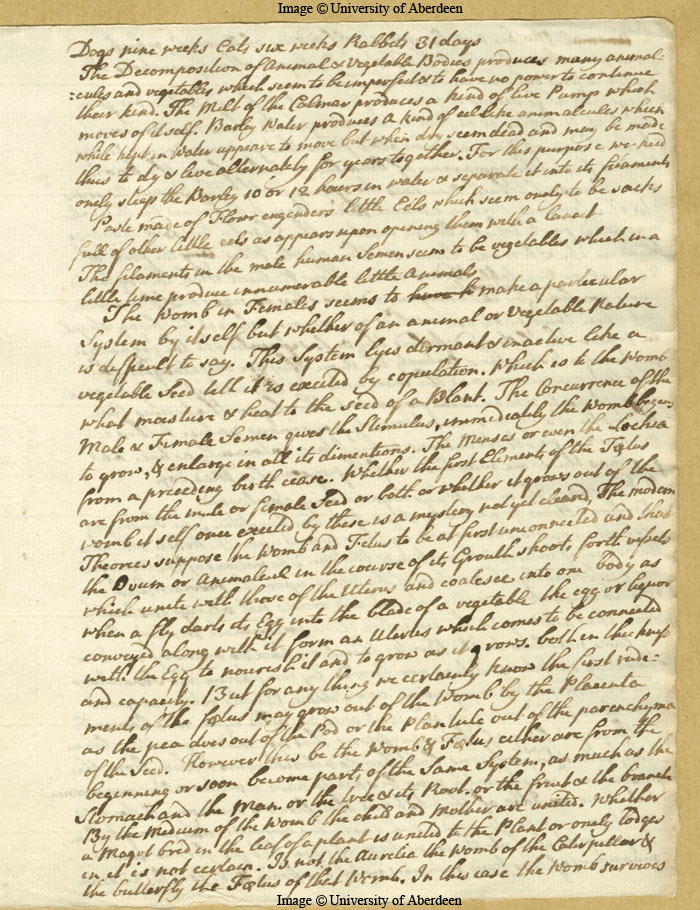 Image © University of Aberdeen
Dogs nine weeks Cats six weeks Rabbets 31 days
The Decomposition of animal & Vegetable Bodies produces many animal-
:cules and vegetables which seem to be imperfect & to have no power to continue
their kind. The Milt of the Calmar produces a kind of live Pump which
moves of itself. Barley Water produces a kind of eel like animalcules which
while kept in Water appear to move but when dry seem dead and may be made
thus to dy & live alternately for years together. For this purpose we need
onely steep the Barley 10 or 12 hours in water & separate it into its filaments
Paste made of Flowr engenders little Eels which seem onely to be sacks
full of other little eels as appears upon opening them with a lancet
The filaments in the male human Semen seem to be vegetables which in a
little time produce innumerable little animals
The Womb in Females seems to make a particular
System by it self but whether of an animal or Vegetable Nature
is difficult to say. This System lyes dormant & inactive like a
vegetable Seed till it is excited by copulation. Which is to the Womb
what moisture & heat to the seed of a Plant. The Concurrence of the
Male & Female Semen gives the Stimulus, immediately the Womb begins
to grow, & enlarge in all its dimentions. The Menses or even the Lochea
from a preceeding birth cease. Whether the first Elements of the Fœtus
are from the male or female Seed or both or whether it grows out of the
womb it self once excited by these is a mystery not yet cleared, The modern
Theories suppose the Womb and Fetus to be at first unconnected and that
the Ovum or animalcul in the course of its Grouth shoots forth vessels
which unite with those of the Uterus and coalesce into one body as
when a fly darts its Egg into the blade of a vegetable the egg or liquor
conveyed along with it form an Uterus which comes to be connected
with the Egg to nourish it and to grow as it grows. both in thickness
and capacity. But for any thing we certainly know the first rude-
ments of the fœtus may grow out of the Womb by the Placenta
as the pea does out of the Pod or the Plantule out of the parenchyma
of the Seed. However this be the Womb & Fœtus either are from the
beginning or soon become parts of the Same System, as much as the
Stomach and the man. or the tree & its Root. or the fruit & the branch
By the Medium of the Womb the child and Mother are united. Whether
a Magot bred in the leaf of a plant is united to the Plant or onely lodges
in it is not certain. Is not the Aurelia the Womb of the Caterpillar &
the butterfly the Fœtus of that Womb. In this case the Womb survives
Image © University of Aberdeen